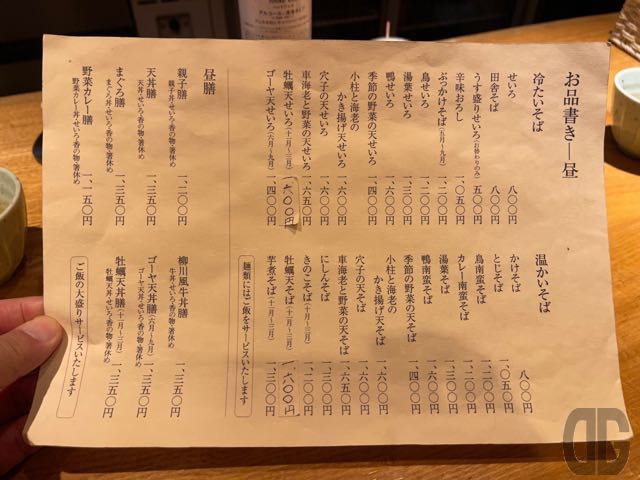 お品書き―昼
冷たいそば
せいろ 八〇〇円
田舎せいろ 八〇〇円
うす盛りせいろ(お替わりのみ) 五〇〇円
辛味おろし 一、〇五〇円
ぶっかけそば(五月~九月) 一、二〇〇円
鳥せいろ 一、二〇〇円
湯葉せいろ 一、三〇〇円
鴨せいろ
季節の野菜の天せいろ 一、四〇〇円
小柱と海老の
かき揚げ天せいろ 一、六〇〇円
穴子の天せいろ 一、六〇〇円
車海老と野菜の天せいろ 一、六五〇円
牡蠣天せいろ(十一月~三月) 一、六〇〇円
ゴーヤ天せいろ(六月~九月) 一、四〇〇円
温かいそば
かけそば 八〇〇円
とじそば 一、〇五〇円
鳥南蛮そば 一、二〇〇円
カレー南蛮そば 一、二〇〇円
湯葉そば
鴨南蛮そば
季節の野菜の天そば 一、四〇〇円
小柱と海老の
かき揚げ天そば 一、六〇〇円
穴子の天そば 一、六〇〇円
車海老と野菜の天そば 一、六五〇円
にしんそば 一、三〇〇円
きのこそば(十月~三月) 一、二〇〇円
牡蠣天そば(十一月~三月) 一、六〇〇円
芋煮そば(十一月~三月) 一、三〇〇円
麺類にはご飯をサービスいたします
昼膳
親子膳 一、二〇〇円
親子丼・せいろ・香の物・箸休め
天丼膳 一、三五〇円
天丼・せいろ・香の物・箸休め
まぐろ膳 一、三五〇円
まぐろ丼・せいろ・香の物・箸休め
野菜カレー膳 一、一五〇円
野菜カレー丼・せいろ・香の物・箸休め
柳川風牛丼膳 一、三五〇円
牛丼・せいろ・香の物・箸休め
ゴーヤ天丼膳(六月~九月) 一、三五〇円
ゴーヤ天丼・せいろ・香の物・箸休め
牡蠣天丼膳(十一月~三月) 一、三五〇円
牡蠣天丼・せいろ・香の物・箸休め
ご飯の大盛りサービスいたします
DG